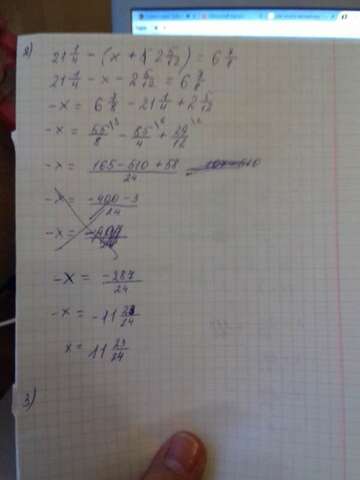 2) 21 1/4 - (x + 2 5/12) = 6 7/8
21 1/4 - x - 2 5/12 = 6 7/8
-x = 6 7/8 - 21 1/4 + 2 5/12
-x = 55/8 - 85/4 + 29/12
-x = 165-510+58/24
-x = -400-3/24
-x =
-x = -287/24
-x = -11 23/24
x = 11 23/24
3)